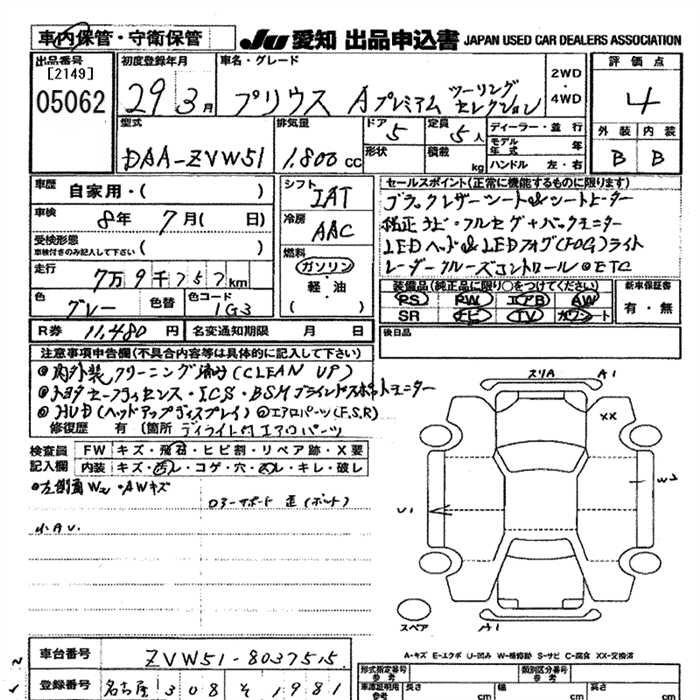 車内保管・守衛保管 JU 愛知 出品申込書 JAPAN USED CAR DEALERS ASSOCIATION
出品番号 [2149] 05062
初度登録年月 29 3月
車名・グレード プリウス Aプレミアム ツーリングセレクション
2WD・4WD
評価点 4
型式 DAA-ZVW51
排気量 1.800 cc
ドア 5
形状
定員 5人
積載 kg
ディーラー・並行
モデル年式 年
ハンドル 左・右
外装 内装
B B
車歴 自家用・( )
車検 8年 7月( 日)
受検形態 車検付きのみ記入して下さい ( )
走行 7万9千757km
色 グレー 色替 色コード 1G3
R券 11,480 円 名変通知期限 月 日
シフト IAT
冷房 AAC
燃料 ガソリン・軽・油 ( )
セールスポイント(正常に機能するものに限ります)
ブラックレザーシート&シートヒーター
純正ナビ・フルセグ+バックモニター
LEDヘッド&LEDフォグ(FOG)ライト
レーダークルーズコントロール @ETC
装備品(純正品に限り○をつけてください)
PS PW エアB AW
SR ナビ TV カワシート
新車保証書 有・無
後日品
注意事項申告欄(不具合内容等は具体的に記入して下さい)
内外装クリーニング済み(CLEAN UP)
トヨタセーフティセンス・ICS・BSMブラインドスポットモニター
HUD(ヘッドアップディスプレイ) @エアロパーツ(F,S,R)
修復歴 有 (箇所 デイライト付エアロパーツ
検査員記入欄
FW キズ・飛石・ヒビ割・リペア跡・X要
内装 キズ・汚レ・コゲ・穴・スレ・キレ・破レ
左側面W2・AWキズ
小A,U.
スリA A1
XX
W2
U1
A1
スペア
A-キズ E-エクボ U-凹み W-補修跡 S-サビ C-腐食 XX-交換済
車台番号 ZVW51-8037515
登録番号 名古屋 308 そ 1981
形式指定番号 参考
類別区分番号 参考
車庫証明用 参考 長さ cm 幅 cm 高さ cm